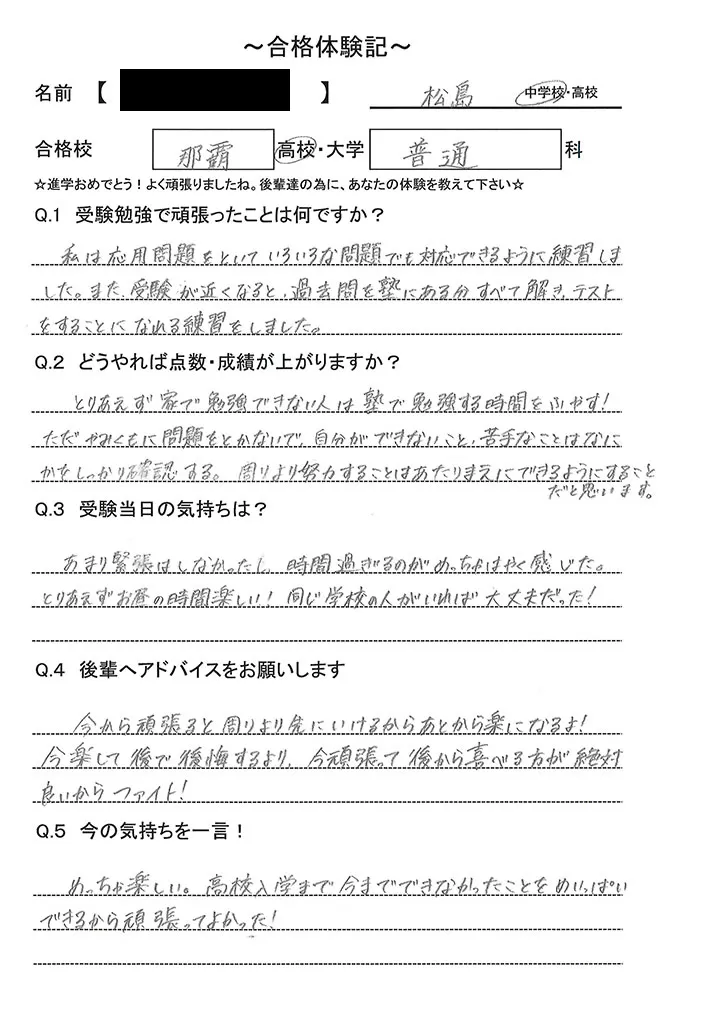 ～合格体験記～
名前 【 】 松島 中学校・高校
合格校 那覇 高校・大学 普通 科
☆進学おめでとう！よく頑張りましたね。後輩達の為に、あなたの体験を教えて下さい☆
Q.1 受験勉強で頑張ったことは何ですか？
私は応用問題をといていろいろな問題でも対応できるように練習しま
した。また、受験が近くなると、過去問を塾にある分すべて解き、テスト
をすることになれる練習をしました。
Q.2 どうやれば点数・成績が上がりますか？
とりあえず家で勉強できない人は塾で勉強する時間をふやす！
ただやみくもに問題をとかないで、自分ができないこと、苦手なことはなに
かをしっかり確認する。周りより努力することはあたりまえにできるようにすること
だと思います。
Q.3 受験当日の気持ちは？
あまり緊張はしなかったし、時間過ぎるのがめっちゃはやく感じた。
とりあえずお昼の時間楽しい！同じ学校の人がいれば大丈夫だった！
Q.4 後輩へアドバイスをお願いします
今から頑張ると周りより先にいけるからあとから楽になるよ！
今楽して後で後悔するより、今頑張って後から喜べる方が絶対
良いからファイト！
Q.5 今の気持ちを一言！
めっちゃ楽しい。高校入学まで今までできなかったことをめいっぱい
できるから頑張ってよかった！